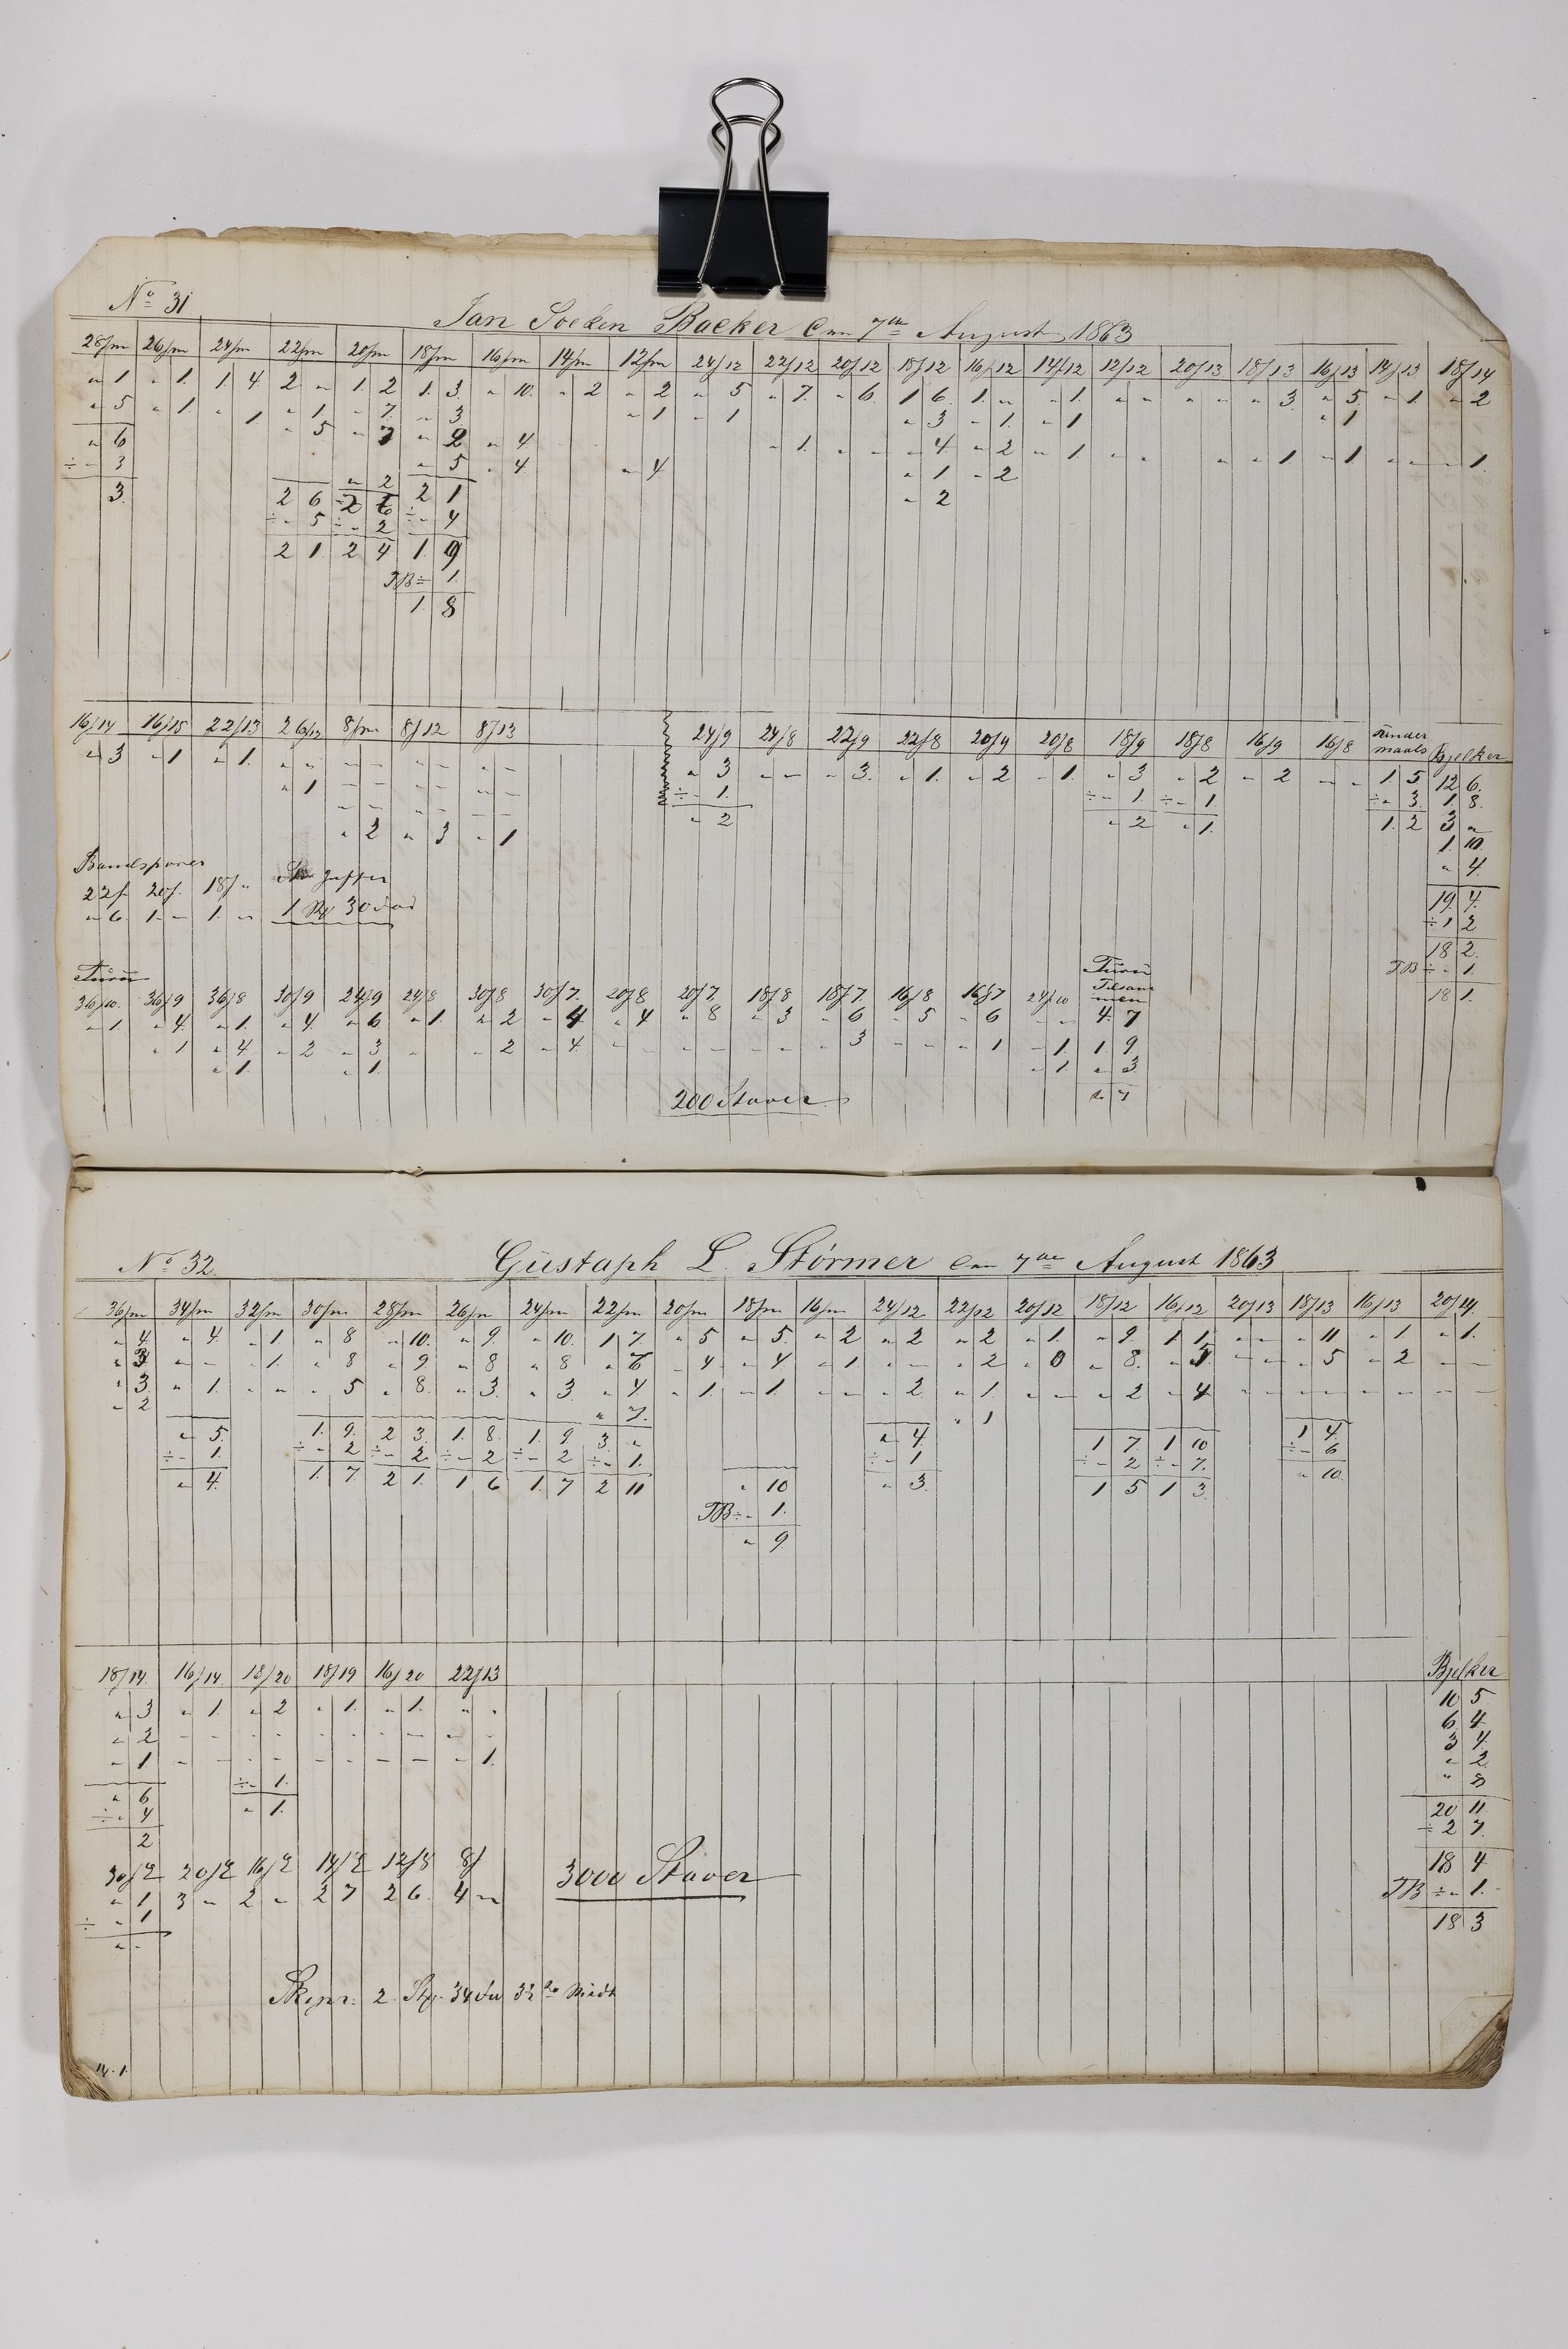 No 31 Jan Soeken Backer Den 7de August 1863
28/m 26/m 24/m 22/m 20/m 18/m 16/m 14/m 12/m 24/12 22/12 20/12 18/12 16/12 14/12 12/12 20/13 18/13 16/13 14/13 18/14
" 1 " 1. 1. 4. 2 " 1. 2 1. 3. " 10. " 2 " 2 " 5 " 7. " 6. 1 6. 1. " " 1. " " " " " 3. " 5. " 1. " 2
" 5 " 1. " 1 " 1. " 7. " 3 " 1 " 1 " 3 " 1. " 1 " 1
" 6 " 5 " 7 " 2 " 4 " 1. " " " 4. " 2 " 1. " " " " 1. " 1. " " " 1.
÷ " 3 " 5 " 4 " 4 " 1 " 2
3. " 2 " 2
2 6 2 6 2 1
÷ " 5 ÷ " 2 ÷ " 4
2 1. 2 4 1. 9
TB ÷ 1.
1. 8
16/14 16/15 22/13 26/12 8/m 8/12 8/13 24/9 24/8 22/9 22/8 20/9 20/8 18/9 18/8 16/9 16/8 Bjelker
" 3 " 1 " 1. " " " 3 " " " 3. " 1. " 2 " 1. " 3 " 2 " 2 " " 1. 5 12 6.
" 1 ÷ " 1. ÷ " 1. ÷ " 1 ÷ " 3. 1 8.
" 2 " 2 " 1. 1. 2 3 "
" 2 " 3 " 1 1. 10.
" 4.
19. 4.
÷ 1 2
18 2.
TB ÷ " 1.
18 1.
22/ 20/. 18/ "
" 6. 1. " 1. "
36/10. 36/9 36/8 30/9 24/9 24/8 30/8 30/7. 20/8 20/7. 18/8 18/7 16/8 16/7 24/10
" 1 " 4. " 1. " 4. " 6 " 1. " 2 " 4 " 4 " 8 " 3 " 6 " 5 " 6 " " 4. 7
" 1 " 4 " 2 " 3 " 2 " 4. " 3 " 1 " 1. 1 9
" 1 " 1. " 1. " 3
200 Staver " 7
No 32. Gustaph L. Störmer Den 7de August 1863
36/m 34/m 32/m 30/m 28/m 26/m 24/m 22/m 20/m 18/m 16/m 24/12 22/12 20/12 18/12 16/12 20/13 18/13 16/13 20/14.
" 4. " 4. " 1 " 8 " 10. " 9. " 10. 1 7. " 5 " 5. " 2 " 2 " 2 " 1. " 9. 1 1. " " " 11 " 1. " 1.
" 3 " " " 1. " 8 " 9 " 8 " 8 " 6 " 4 " 4. " 1. " " " 2 " 0 " 8. " 5 " " " 5 " 2 " "
" 3. " 1. " " " 5 " 8. " 3. " 3 " 4 " 1. " 1. " " " 2 " 1 " " " 2 " 4
" 2 " 7. " 1
" 5. 1. 9. 2 3. 1. 8. 1. 9. 3. " " 4. 1 7. 1 10 1 4.
÷ " 1. ÷ " 2 ÷ " 2. ÷ " 2 ÷ " 2 ÷ " 1. ÷ " 1 ÷ " 2 ÷ " 7. ÷ " 6
" 4. 1. 7. 2 1. 1 6 1. 7 2 11 " 10 " 3. 1 5 1 3. " 10.
TB ÷ " 1.
" 9
18/14. 16/14. 18/20 18/19 16/20 22/13 Bjelker
" 3 " 1. " 2 " 1. " 1. " " 10 5.
" 2 6 4.
" 1 " 1. 3 4.
÷ " 1. " 2
" 6 " 1. " 8
÷ " 4 20 11.
2 ÷ 2 7.
14/ 12/8 8/ 18 4
" 1. 3 " 2 " 2 7 2 6. 4 " 3000 Staver TB ÷ " 1.
÷ " 1 18 3
" "
2
14.1.